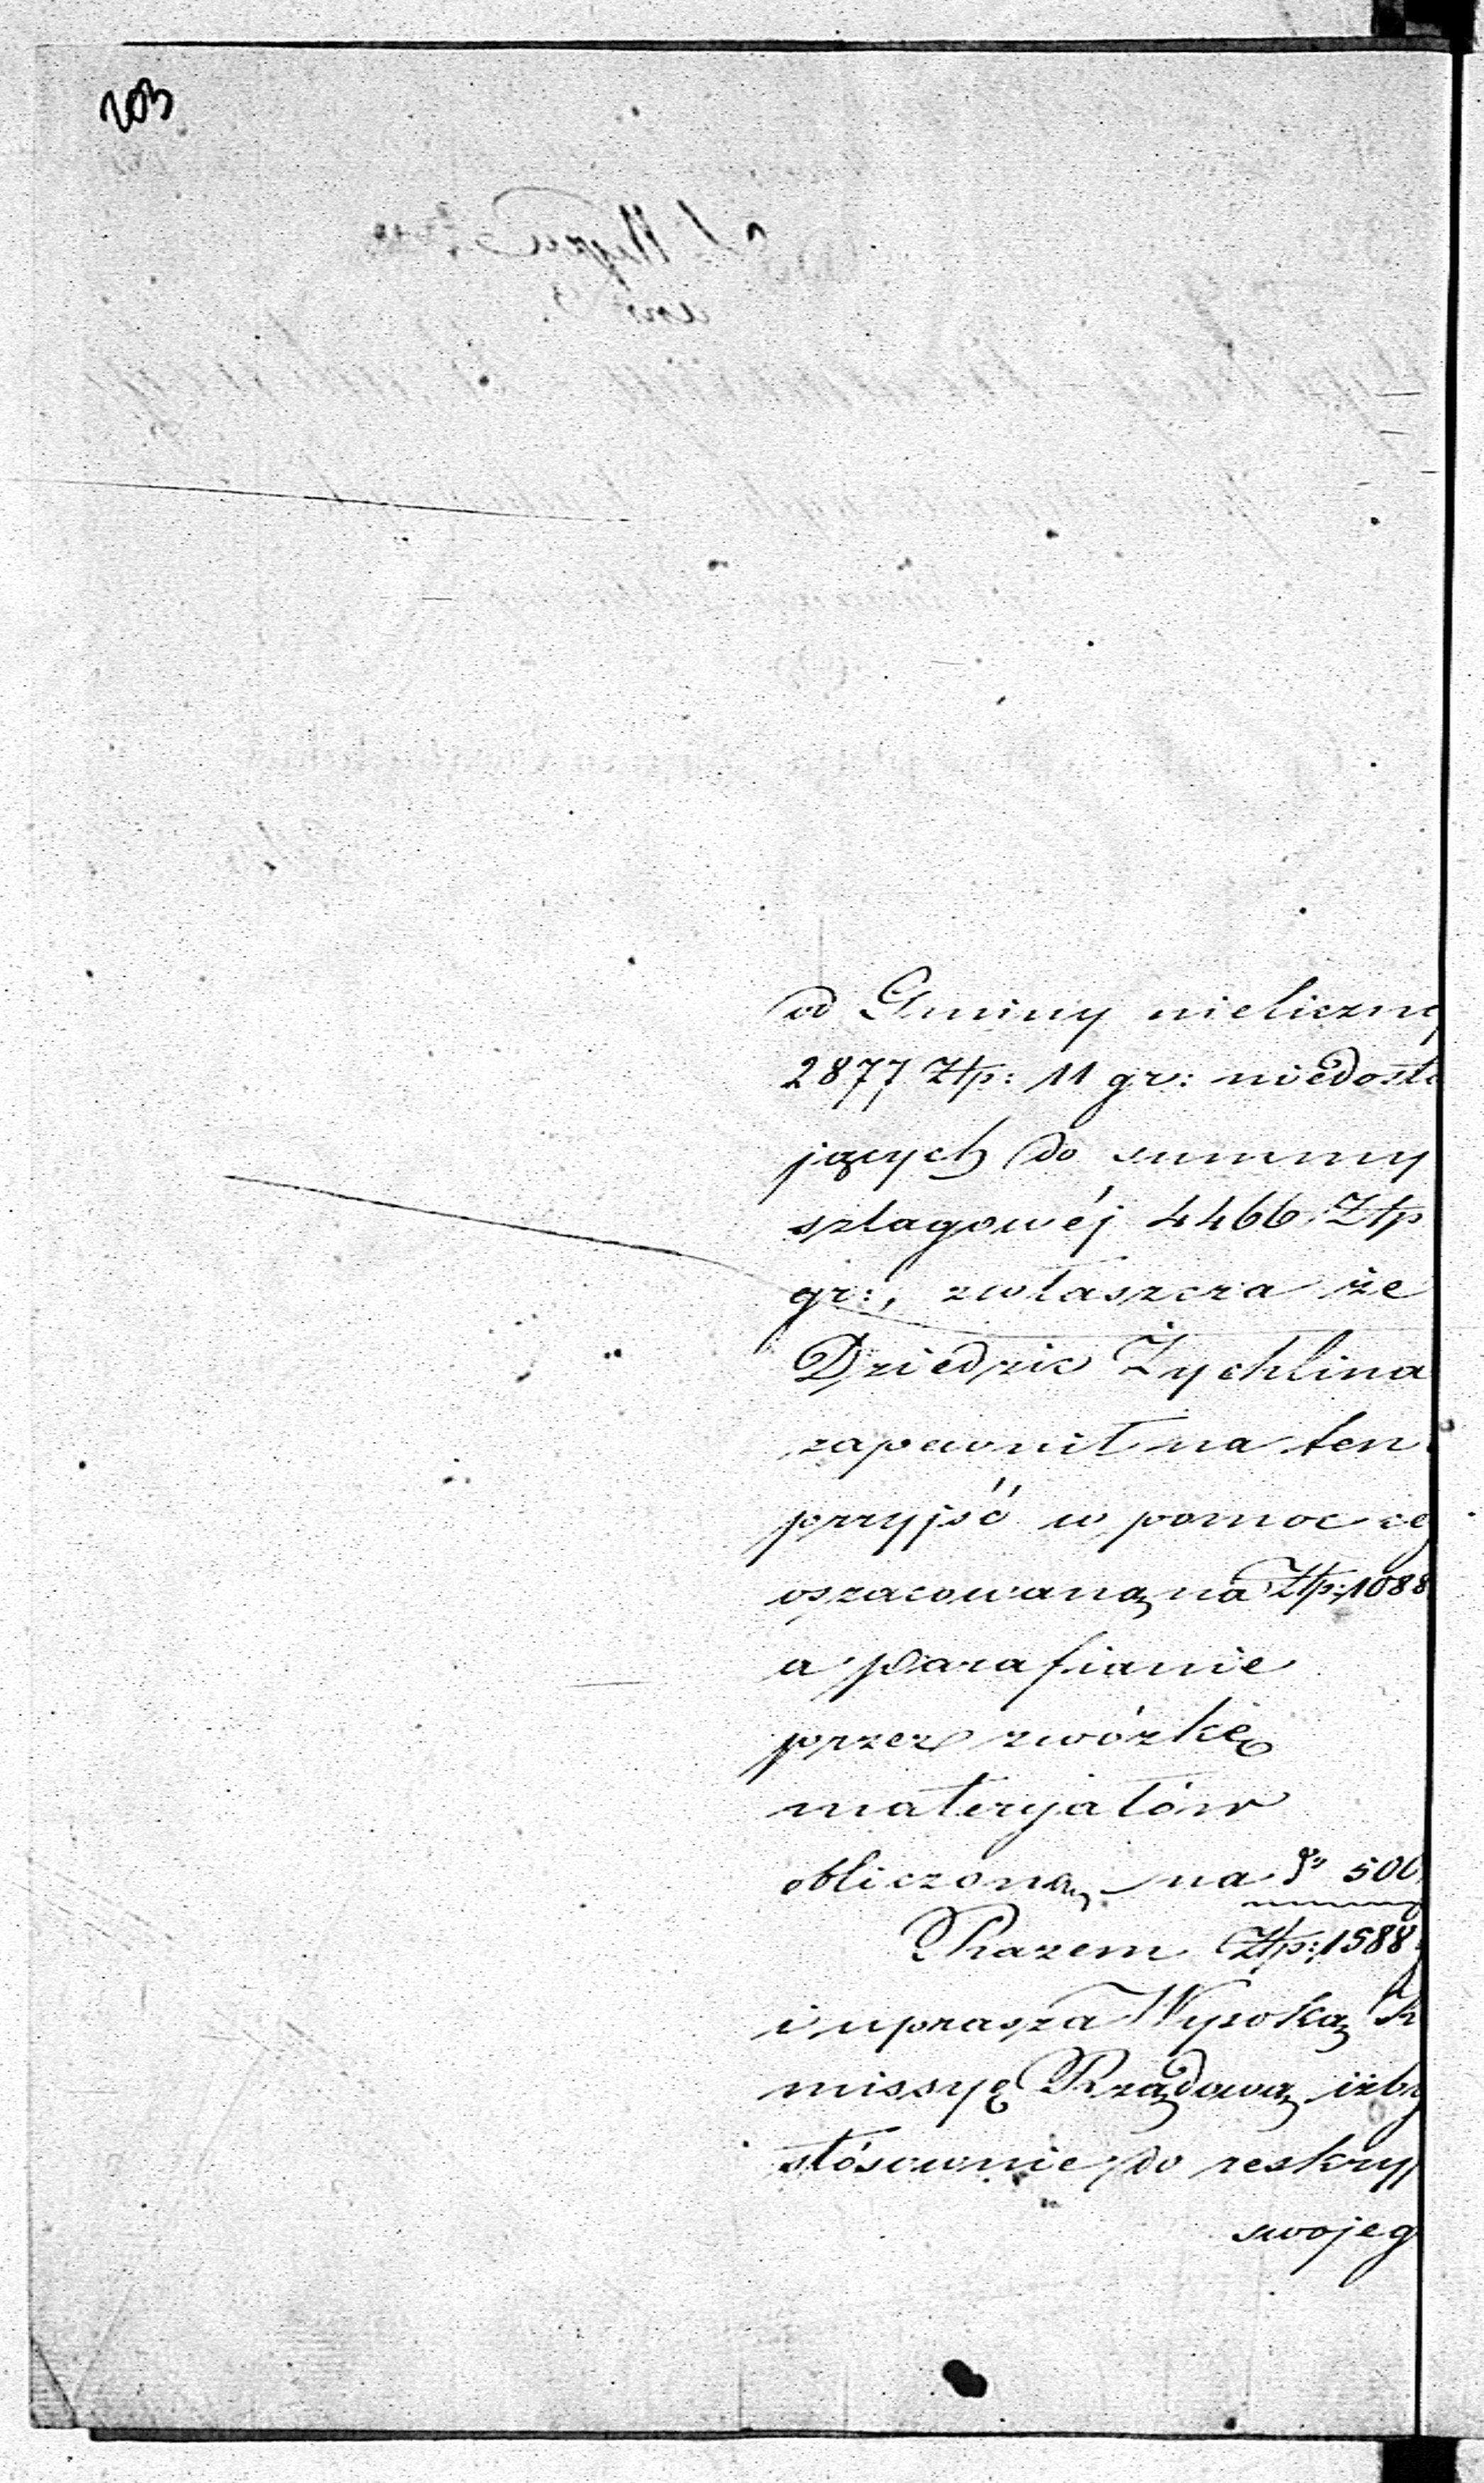 203
od Gminy nieliczne
2877 Złp: 11 gr: niedosta
jących do summy
szlagowéj 4466 Złp
gr:, zwłaszcza że
Dziedzic Żychlina
zapewnił na ten
przyjść w pomoc ce
oszacowaną na Złp: 1088
a parafianie
przez zwózkę
materyałów
obliczoną na 500
Razem Złp: 1588
i uprasza Wysoką K
missyę Rządową iżby
stósownie do reskryp
swojeg